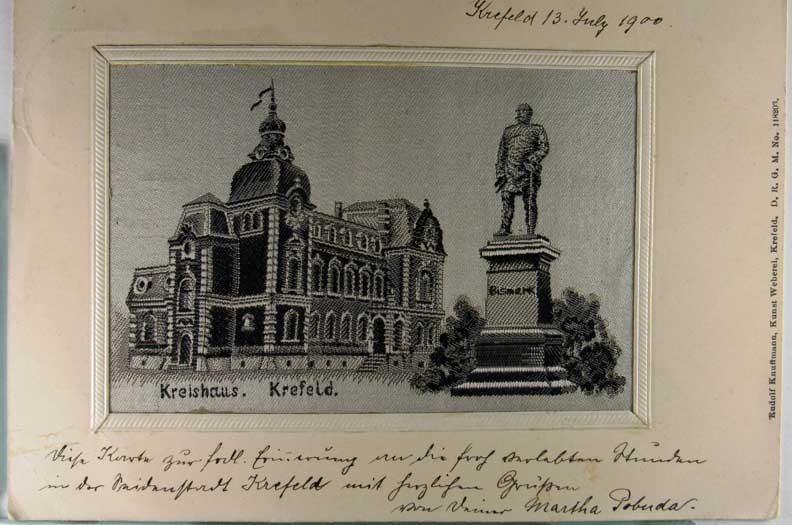 Krefeld 13. July 1900.
Bismarck
Kreishaus. Krefeld.
Rudolf Knuffmann, Kunst Weberei, Krefeld. D. R. G. M. No. 118203.
Diese Karte zur frdl. Erinnerung an die froh verlebten Stunden
in der Seidenstadt Krefeld mit herzlichen Grüßen
von Deiner Martha Pobuda.